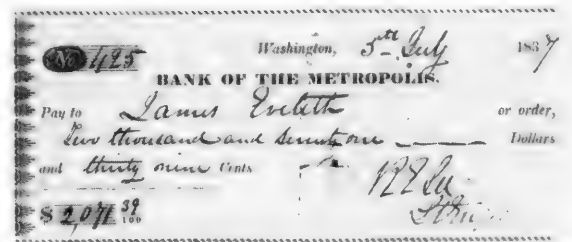 No 425 Washington, 5th July 1837
BANK OF THE METROPOLIS.
Pay to James Eveleth or order,
Two thousand and seventy one Dollars
and thirty nine Cents
R E Lee
$ 2,071 39/100